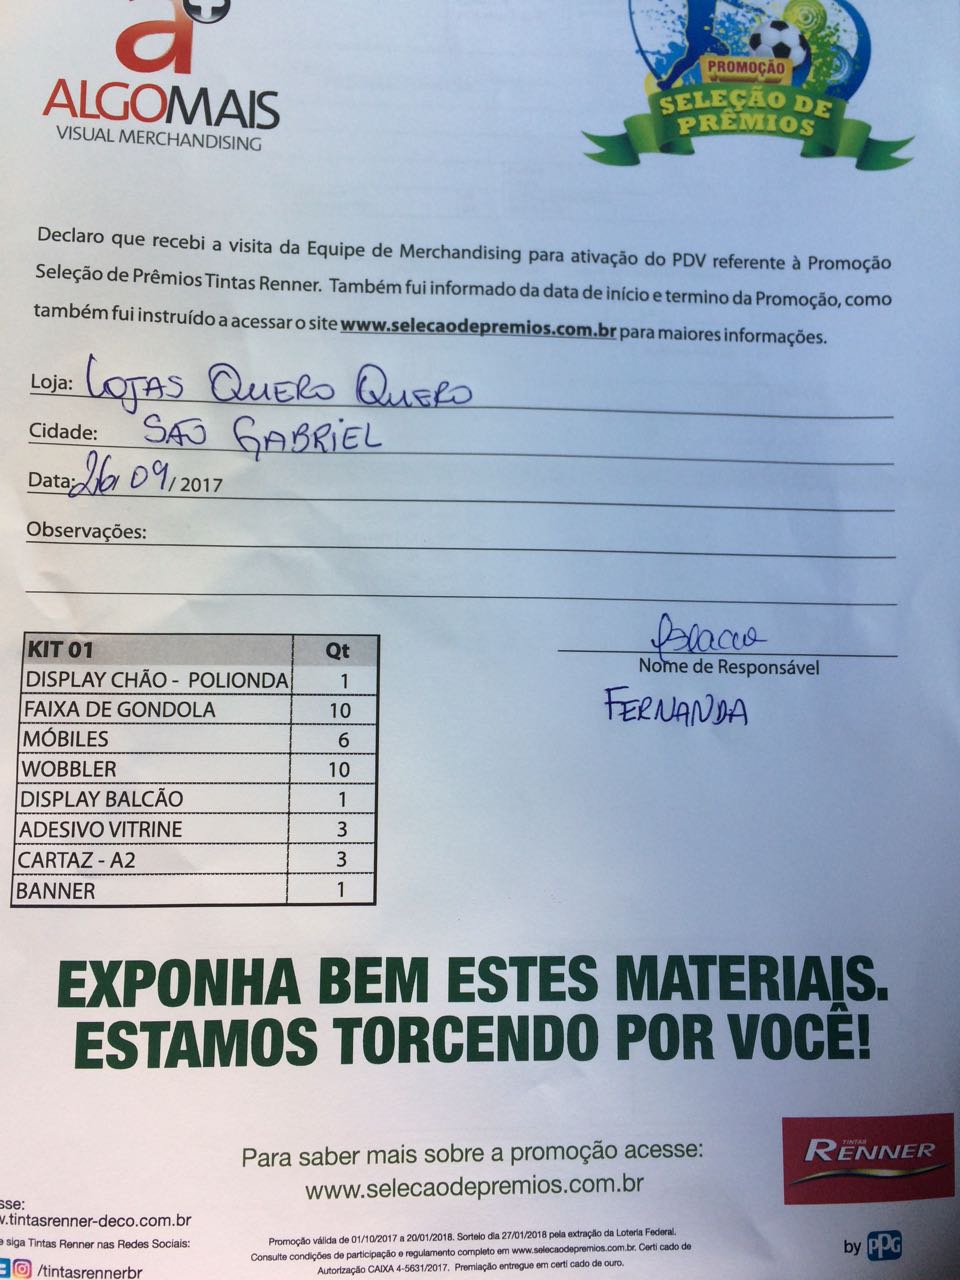 ALGOMAIS
VISUAL MERCHANDISING
PROMOÇÃO
SELEÇÃO DE
PRÊMIOS
Declaro que recebi a visita da Equipe de Merchandising para ativação do PDV referente à Promoção
Seleção de Prêmios Tintas Renner. Também fui informado da data de início e termino da Promoção, como
também fui instruído a acessar o site www.selecaodepremios.com.br para maiores informações.
Loja: LOJAS QUERO QUERO
Cidade: SAO GABRIEL
Data: 26/09/2017
Observações:
Nome de Responsável
FERNANDA
KIT 01 Qt
DISPLAY CHÃO - POLIONDA 1
FAIXA DE GONDOLA 10
MÓBILES 6
WOBBLER 10
DISPLAY BALCÃO 1
ADESIVO VITRINE 3
CARTAZ - A2 3
BANNER 1
EXPONHA BEM ESTES MATERIAIS.
ESTAMOS TORCENDO POR VOCÊ!
Para saber mais sobre a promoção acesse:
www.selecaodepremios.com.br
TINTAS
RENNER
by PPG
sse:
w.tintasrenner-deco.com.br
e siga Tintas Renner nas Redes Sociais:
/tintasrennerbr
Promoção válida de 01/10/2017 a 20/01/2018. Sorteio dia 27/01/2018 pela extração da Loteria Federal.
Consulte condições de participação e regulamento completo em www.selecaodepremios.com.br. Certi cado de
Autorização CAIXA 4-5631/2017. Premiação entregue em certi cado de ouro.